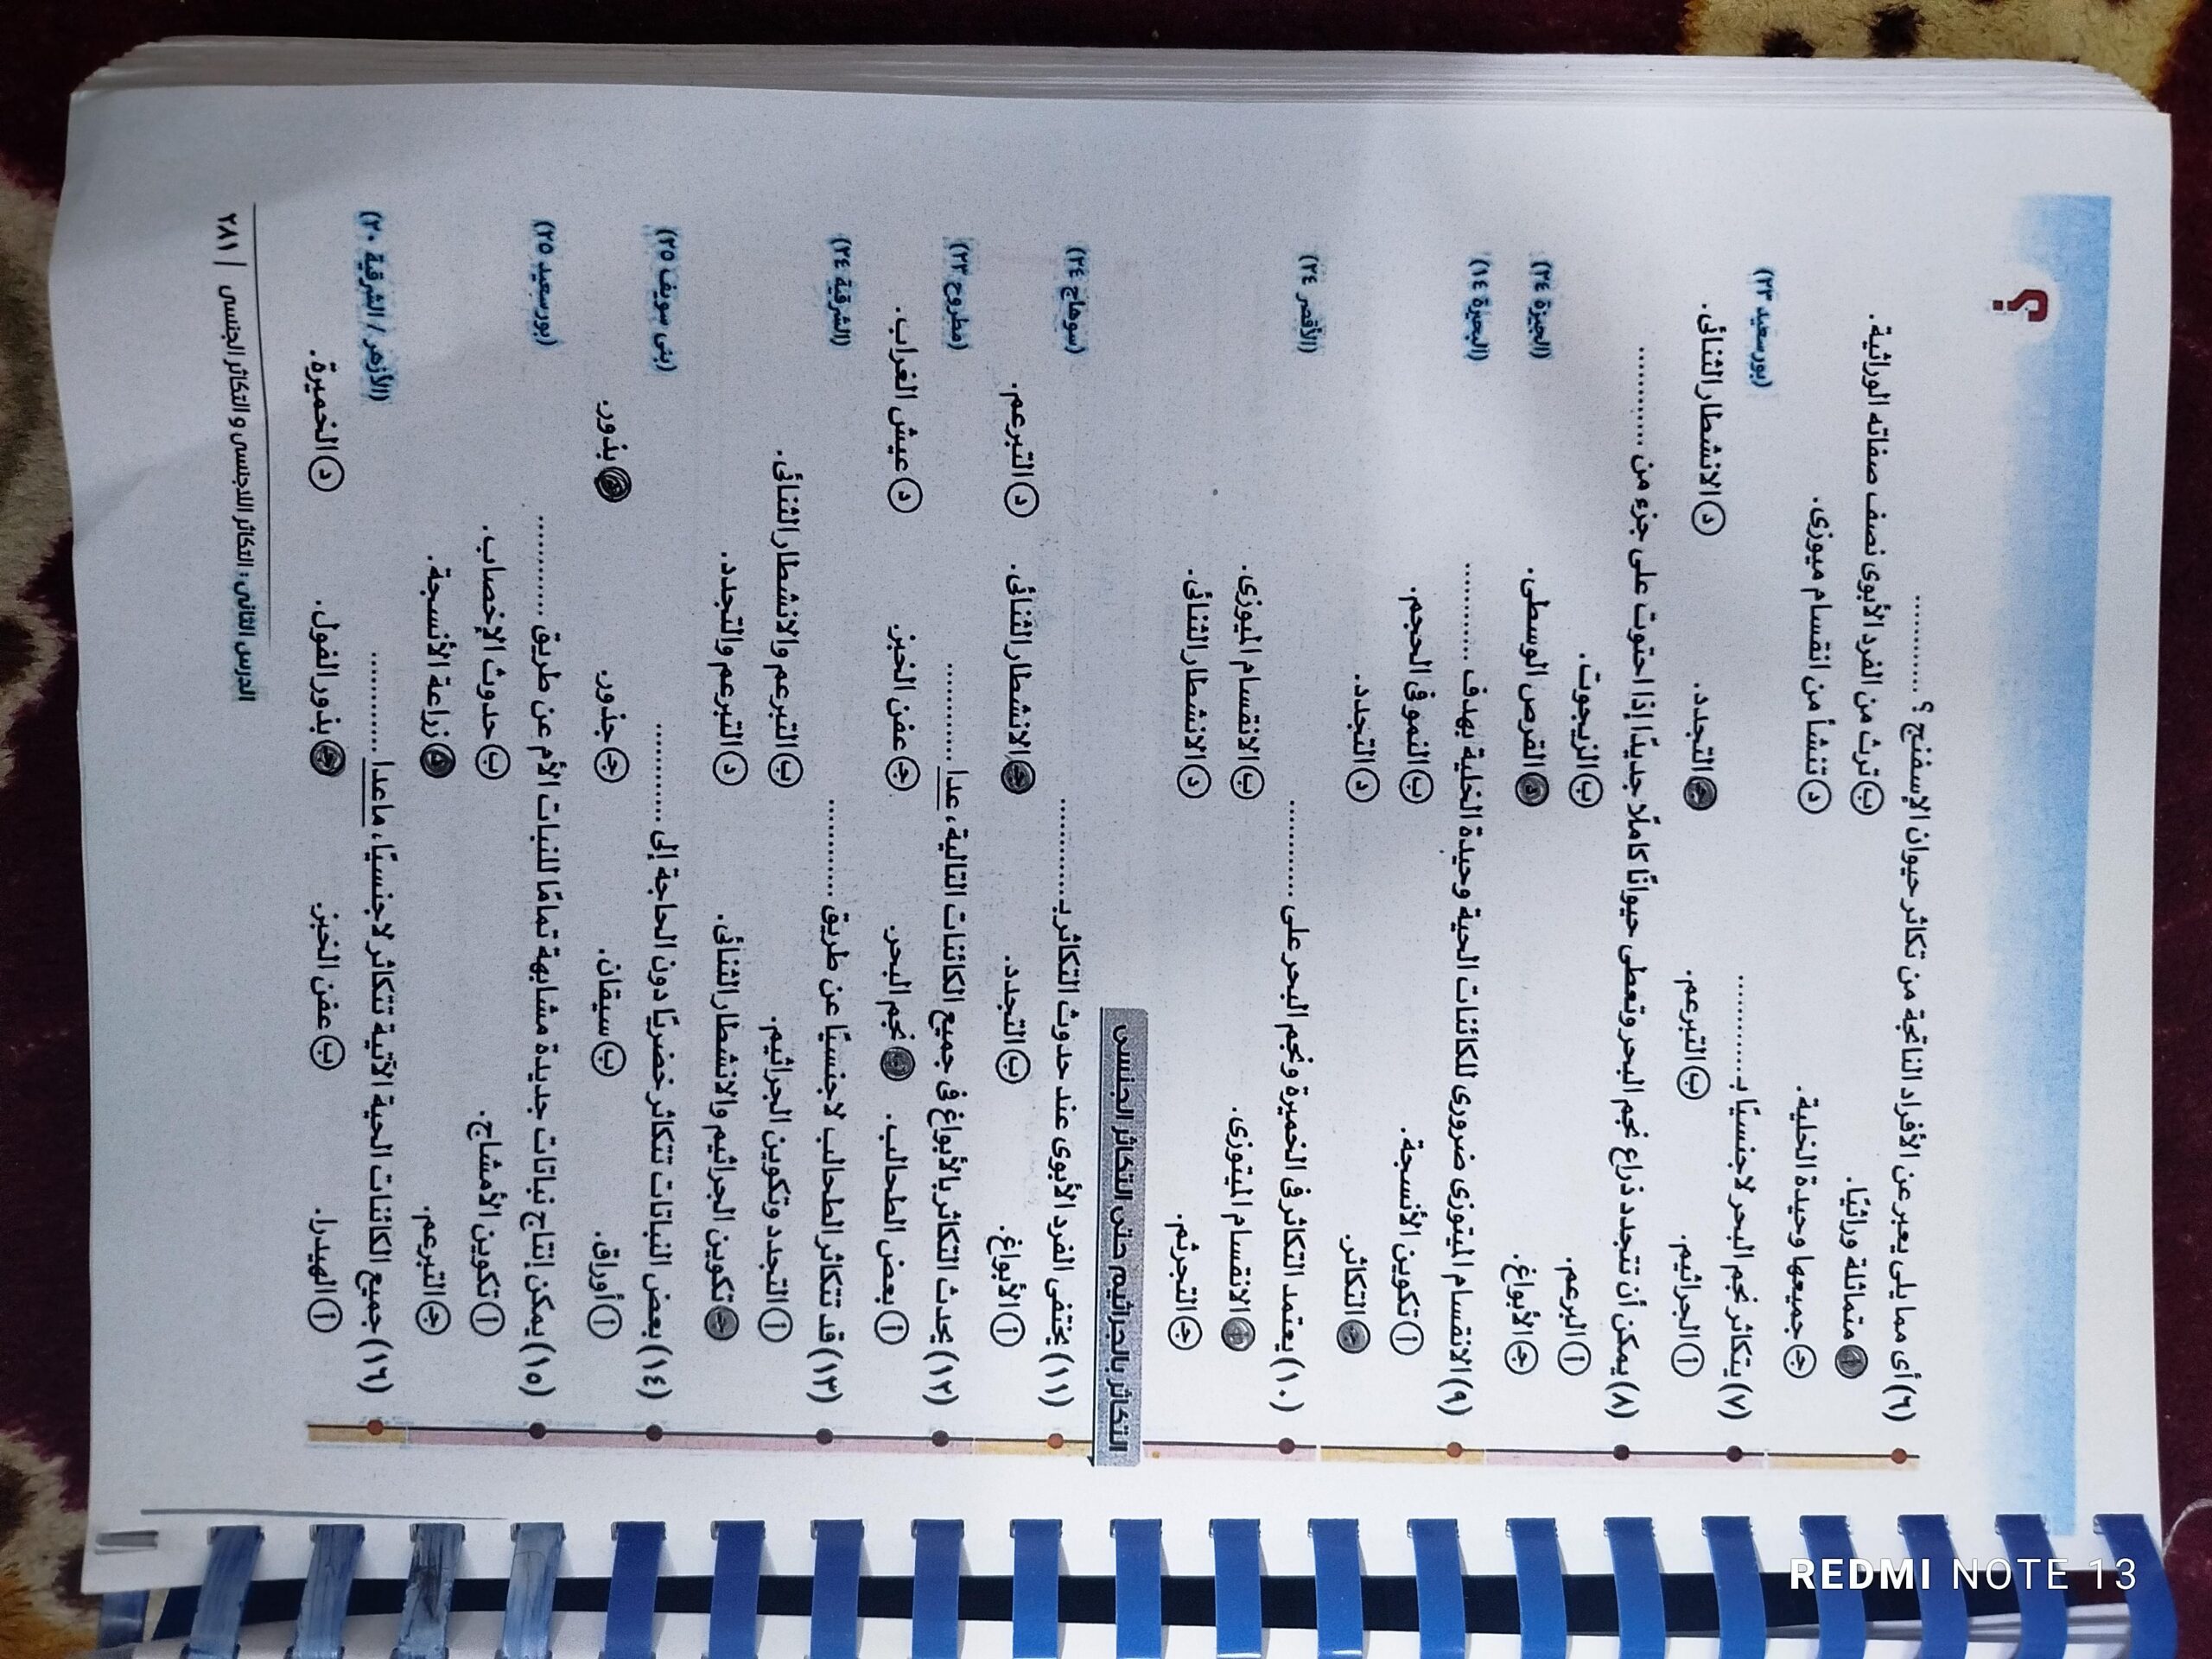 ؟
(٦) أى مما يلى يعبر عن الأفراد الناتجة من تكاثر حيوان الإسفنج ؟ ............
أ متماثلة وراثيًا. ب ترث من الفرد الأبوى نصف صفاته الوراثية.
ج جميعها وحيدة الخلية. د تنشأ من انقسام ميوزى.
(٧) يتكاثر نجم البحر لاجنسيًا بـ ............ (بورسعيد ٢٣)
أ الجراثيم. ب التبرعم. ج التجدد. د الانشطار الثنائى.
(٨) يمكن أن تتجدد ذراع نجم البحر وتعطى حيوانًا كاملًا جديدًا إذا احتوت على جزء من ............
أ البرعم. ب الزيجوت.
ج الأبواغ. د القرص الوسطى. (الجيزة ٢٤)
(٩) الانقسام الميتوزى ضرورى للكائنات الحية وحيدة الخلية بهدف ............ (البحيرة ١٤)
أ تكوين الأنسجة. ب النمو فى الحجم.
ج التكاثر. د التجدد.
(١٠) يعتمد التكاثر فى الخميرة ونجم البحر على ............ (الأقصر ٢٤)
أ الانقسام الميتوزى. ب الانقسام الميوزى.
ج التجرثم. د الانشطار الثنائى.
التكاثر بالجراثيم حتى التكاثر الجنسى
(١١) يختفى الفرد الأبوى عند حدوث التكاثر بـ ............ (سوهاج ٢٤)
أ الأبواغ. ب التجدد. ج الانشطار الثنائى. د التبرعم.
(١٢) يحدث التكاثر بالأبواغ فى جميع الكائنات التالية، عدا ............ (مطروح ٢٣)
أ بعض الطحالب. ب نجم البحر. ج عفن الخبز. د عيش الغراب.
(١٣) قد تتكاثر الطحالب لاجنسيًا عن طريق ............ (الشرقية ٢٤)
أ التجدد وتكوين الجراثيم. ب التبرعم والانشطار الثنائى.
ج تكوين الجراثيم والانشطار الثنائى. د التبرعم والتجدد.
(١٤) بعض النباتات تتكاثر خضريًا دون الحاجة إلى ............ (بنى سويف ٢٥)
أ أوراق. ب سيقان. ج جذور. د بذور.
(١٥) يمكن إنتاج نباتات جديدة مشابهة تمامًا للنبات الأم عن طريق ............ (بورسعيد ٢٥)
أ تكوين الأمشاج. ب حدوث الإخصاب.
ج التبرعم. د زراعة الأنسجة.
(١٦) جميع الكائنات الحية الآتية تتكاثر لاجنسيًا، ماعدا ............ (الأزهر / الشرقية ٢٠)
أ الهيدرا. ب عفن الخبز. ج بذور الفول. د الخميرة.
الدرس الثانى : التكاثر اللاجنسى والتكاثر الجنسى | ٢٨١
REDMI NOTE 13